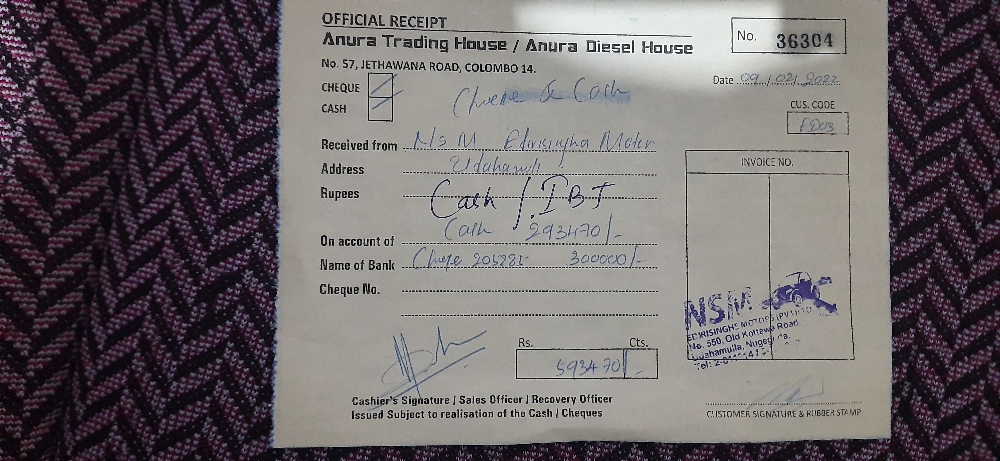 OFFICIAL RECEIPT
Anura Trading House / Anura Diesel House
No. 36304
No. 57, JETHAWANA ROAD, COLOMBO 14.
Date 09/02/2022
CHEQUE
CASH
& Cash
CUS. CODE
Received from M/s M Edirisingha Motor
Address
Rupees Cash / IBT
Cash 293470/-
On account of
Name of Bank 300000/-
Cheque No.
INVOICE NO.
NSM
EDIRISINGHE MOTORS (PVT) LTD
No. 550, Old Kottawa Road
Udahamulla, Nugegoda.
Rs. Cts.
593470/-
Cashier's Signature / Sales Officer / Recovery Officer
Issued Subject to realisation of the Cash / Cheques
CUSTOMER SIGNATURE & RUBBER STAMP